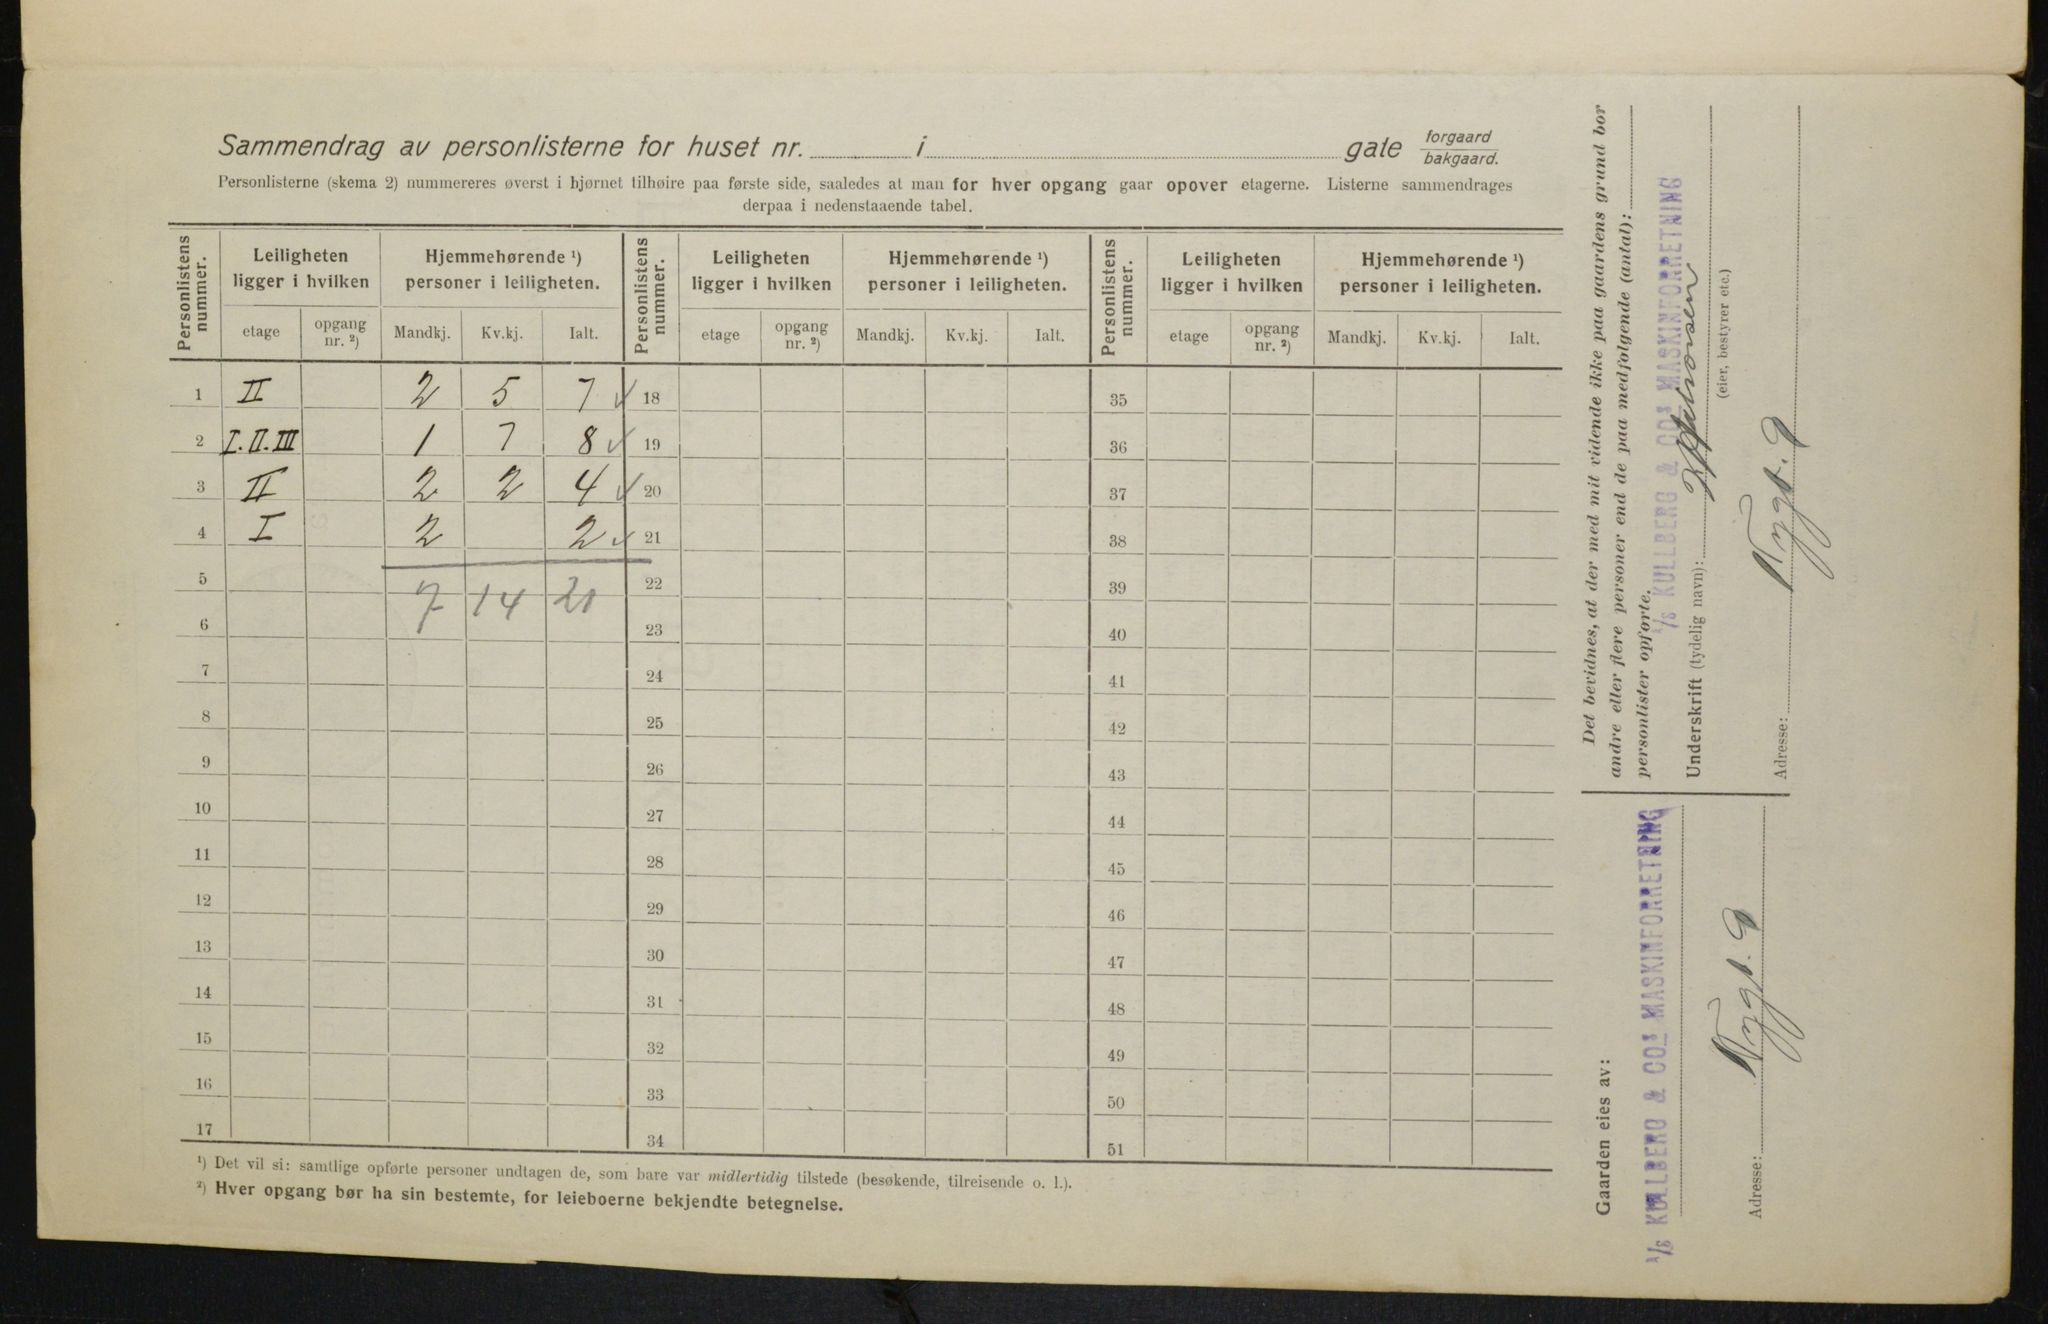 Sammendrag av personlisterne for huset nr. i gate forgaard bakgaard.
Personlisterne (skema 2) nummereres øverst i hjørnet tilhøire paa første side, saaledes at man for hver opgang gaar opover etagerne. Listerne sammendrages
derpaa i nedenstaaende tabel.
Personlistens nummer. Leiligheten ligger i hvilken Hjemmehørende ¹) personer i leiligheten. Personlistens nummer. Leiligheten ligger i hvilken Hjemmehørende ¹) personer i leiligheten. Personlistens nummer. Leiligheten ligger i hvilken Hjemmehørende ¹) personer i leiligheten.
etage opgang nr. ²) Mandkj. Kv.kj. Ialt. etage opgang nr. ²) Mandkj. Kv.kj. Ialt. etage opgang nr. ²) Mandkj. Kv.kj. Ialt.
1 II 2 5 7 ✓ 18 35
2 I.II.III 1 7 8 ✓ 19 36
3 II 2 2 4 ✓ 20 37
4 I 2 2 ✓ 21 38
5 22 39
7 14 21
6 23 40
7 24 41
8 25 42
9 26 43
10 27 44
11 28 45
12 29 46
13 30 47
14 31 48
15 32 49
16 33 50
17 34 51
¹) Det vil si: samtlige opførte personer undtagen de, som bare var midlertidig tilstede (besøkende, tilreisende o. l.).
²) Hver opgang bør ha sin bestemte, for leieboerne bekjendte betegnelse.
Det bevidnes, at der med mit vidende ikke paa gaardens grund bor
andre eller flere personer end de paa medfølgende (antal):
personlister opførte.
A/S KULLBERG & COS MASKINFORRETNING
Underskrift (tydelig navn):
(eier, bestyrer etc.)
Adresse: Nygt. 9
Gaarden eies av:
A/S KULLBERG & COS MASKINFORRETNING
Adresse: Nygt. 9